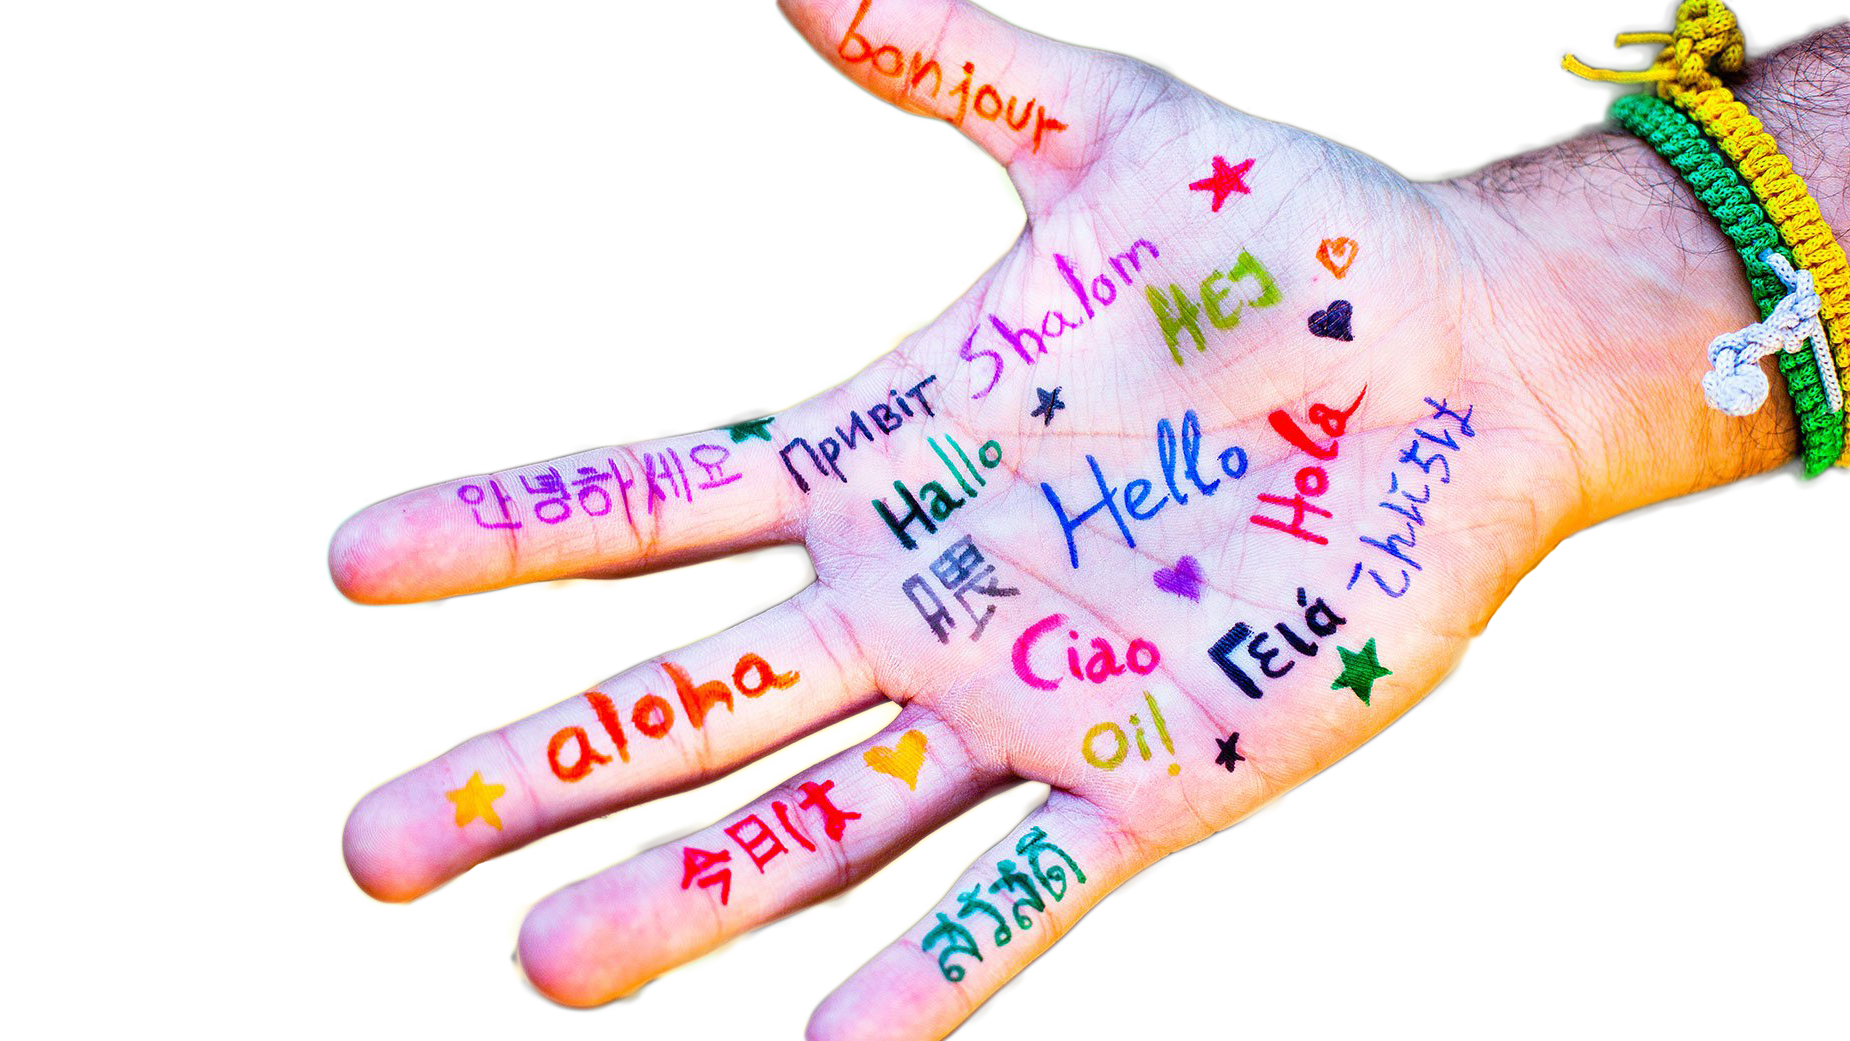 bonjour
Shalom
Hej
Привіт
안녕하세요
Hallo
Hello
Hola
喂
Ciao
Γειά
Oi!
aloha
今日は
สวัสดี